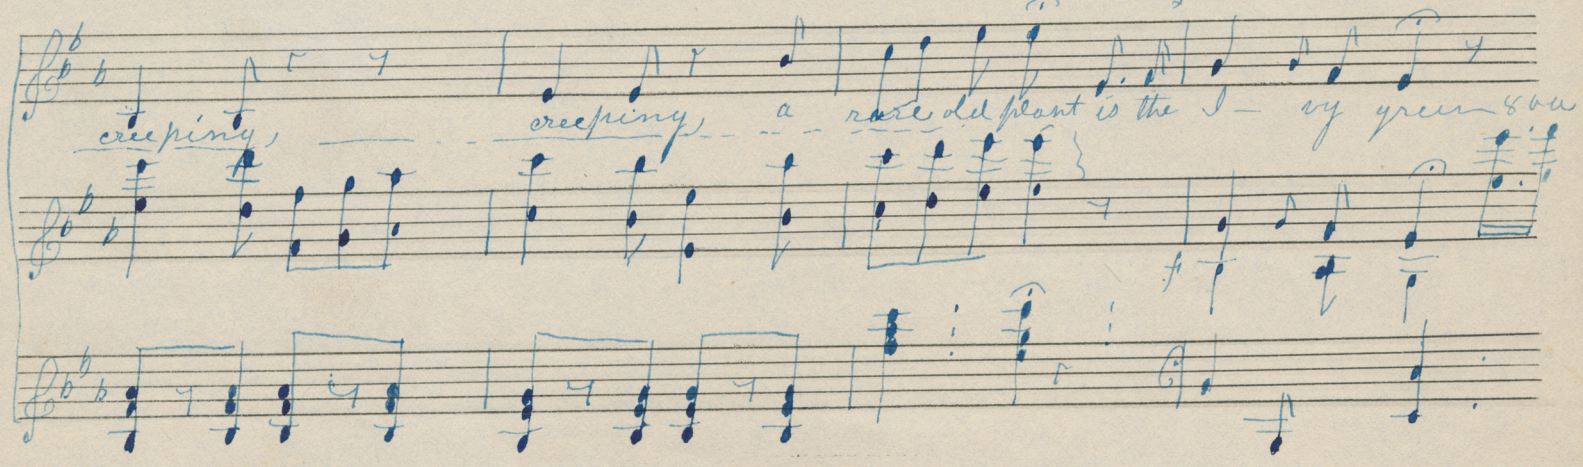 creeping, creeping, a rare old plant is the I - vy green 8va